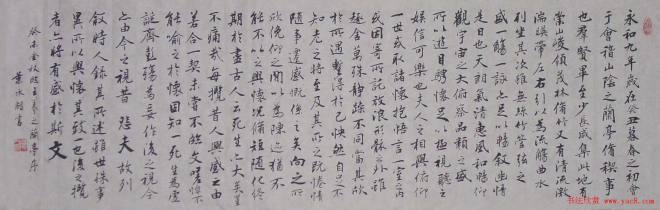 永和九年歲在癸丑暮春之初會
于會稽山陰之蘭亭脩稧事
也羣賢畢至少長咸集此地有
崇山峻領茂林脩竹又有清流激
湍暎帶左右引以為流觴曲水
列坐其次雖無絲竹管弦之
盛一觴一詠亦足以暢敘幽情
是日也天朗氣清惠風和暢仰
觀宇宙之大俯察品類之盛
所以遊目騁懷足以極視聽之
娛信可樂也夫人之相與俯仰
一世或取諸懷抱悟言一室之內
或因寄所託放浪形骸之外雖
趣舍萬殊靜躁不同當其欣
於所遇暫得於己快然自足不
知老之將至及其所之既惓情
隨事遷感慨係之矣向之所
欣俛仰之閒以為陳迹猶不
能不以之興懷況脩短隨化終
期於盡古人云死生亦大矣豈
不痛哉每攬昔人興感之由
若合一契未嘗不臨文嗟悼不
能喻之於懷固知一死生為虛
誕齊彭殤為妄作後之視今
亦由今之視昔悲夫故列
敘時人錄其所述雖世殊事
異所以興懷其致一也後之攬
者亦將有感於斯文
癸未金秋臨王羲之蘭亭序
书法欣赏 www.yac8.com